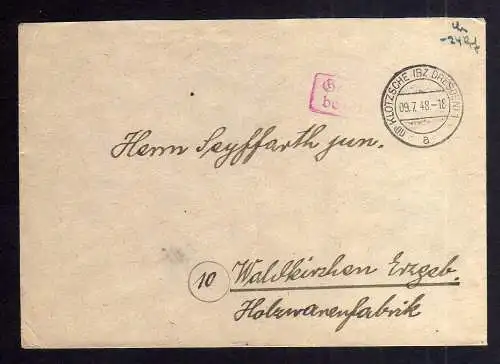 -24 Rpf
KLOTZSCHE (BZ. DRESDEN) 1
09.7.48.-18
a
Herrn Seyffarth jun.
10 Waldkirchen Erzgeb.
Holzwarenfabrik